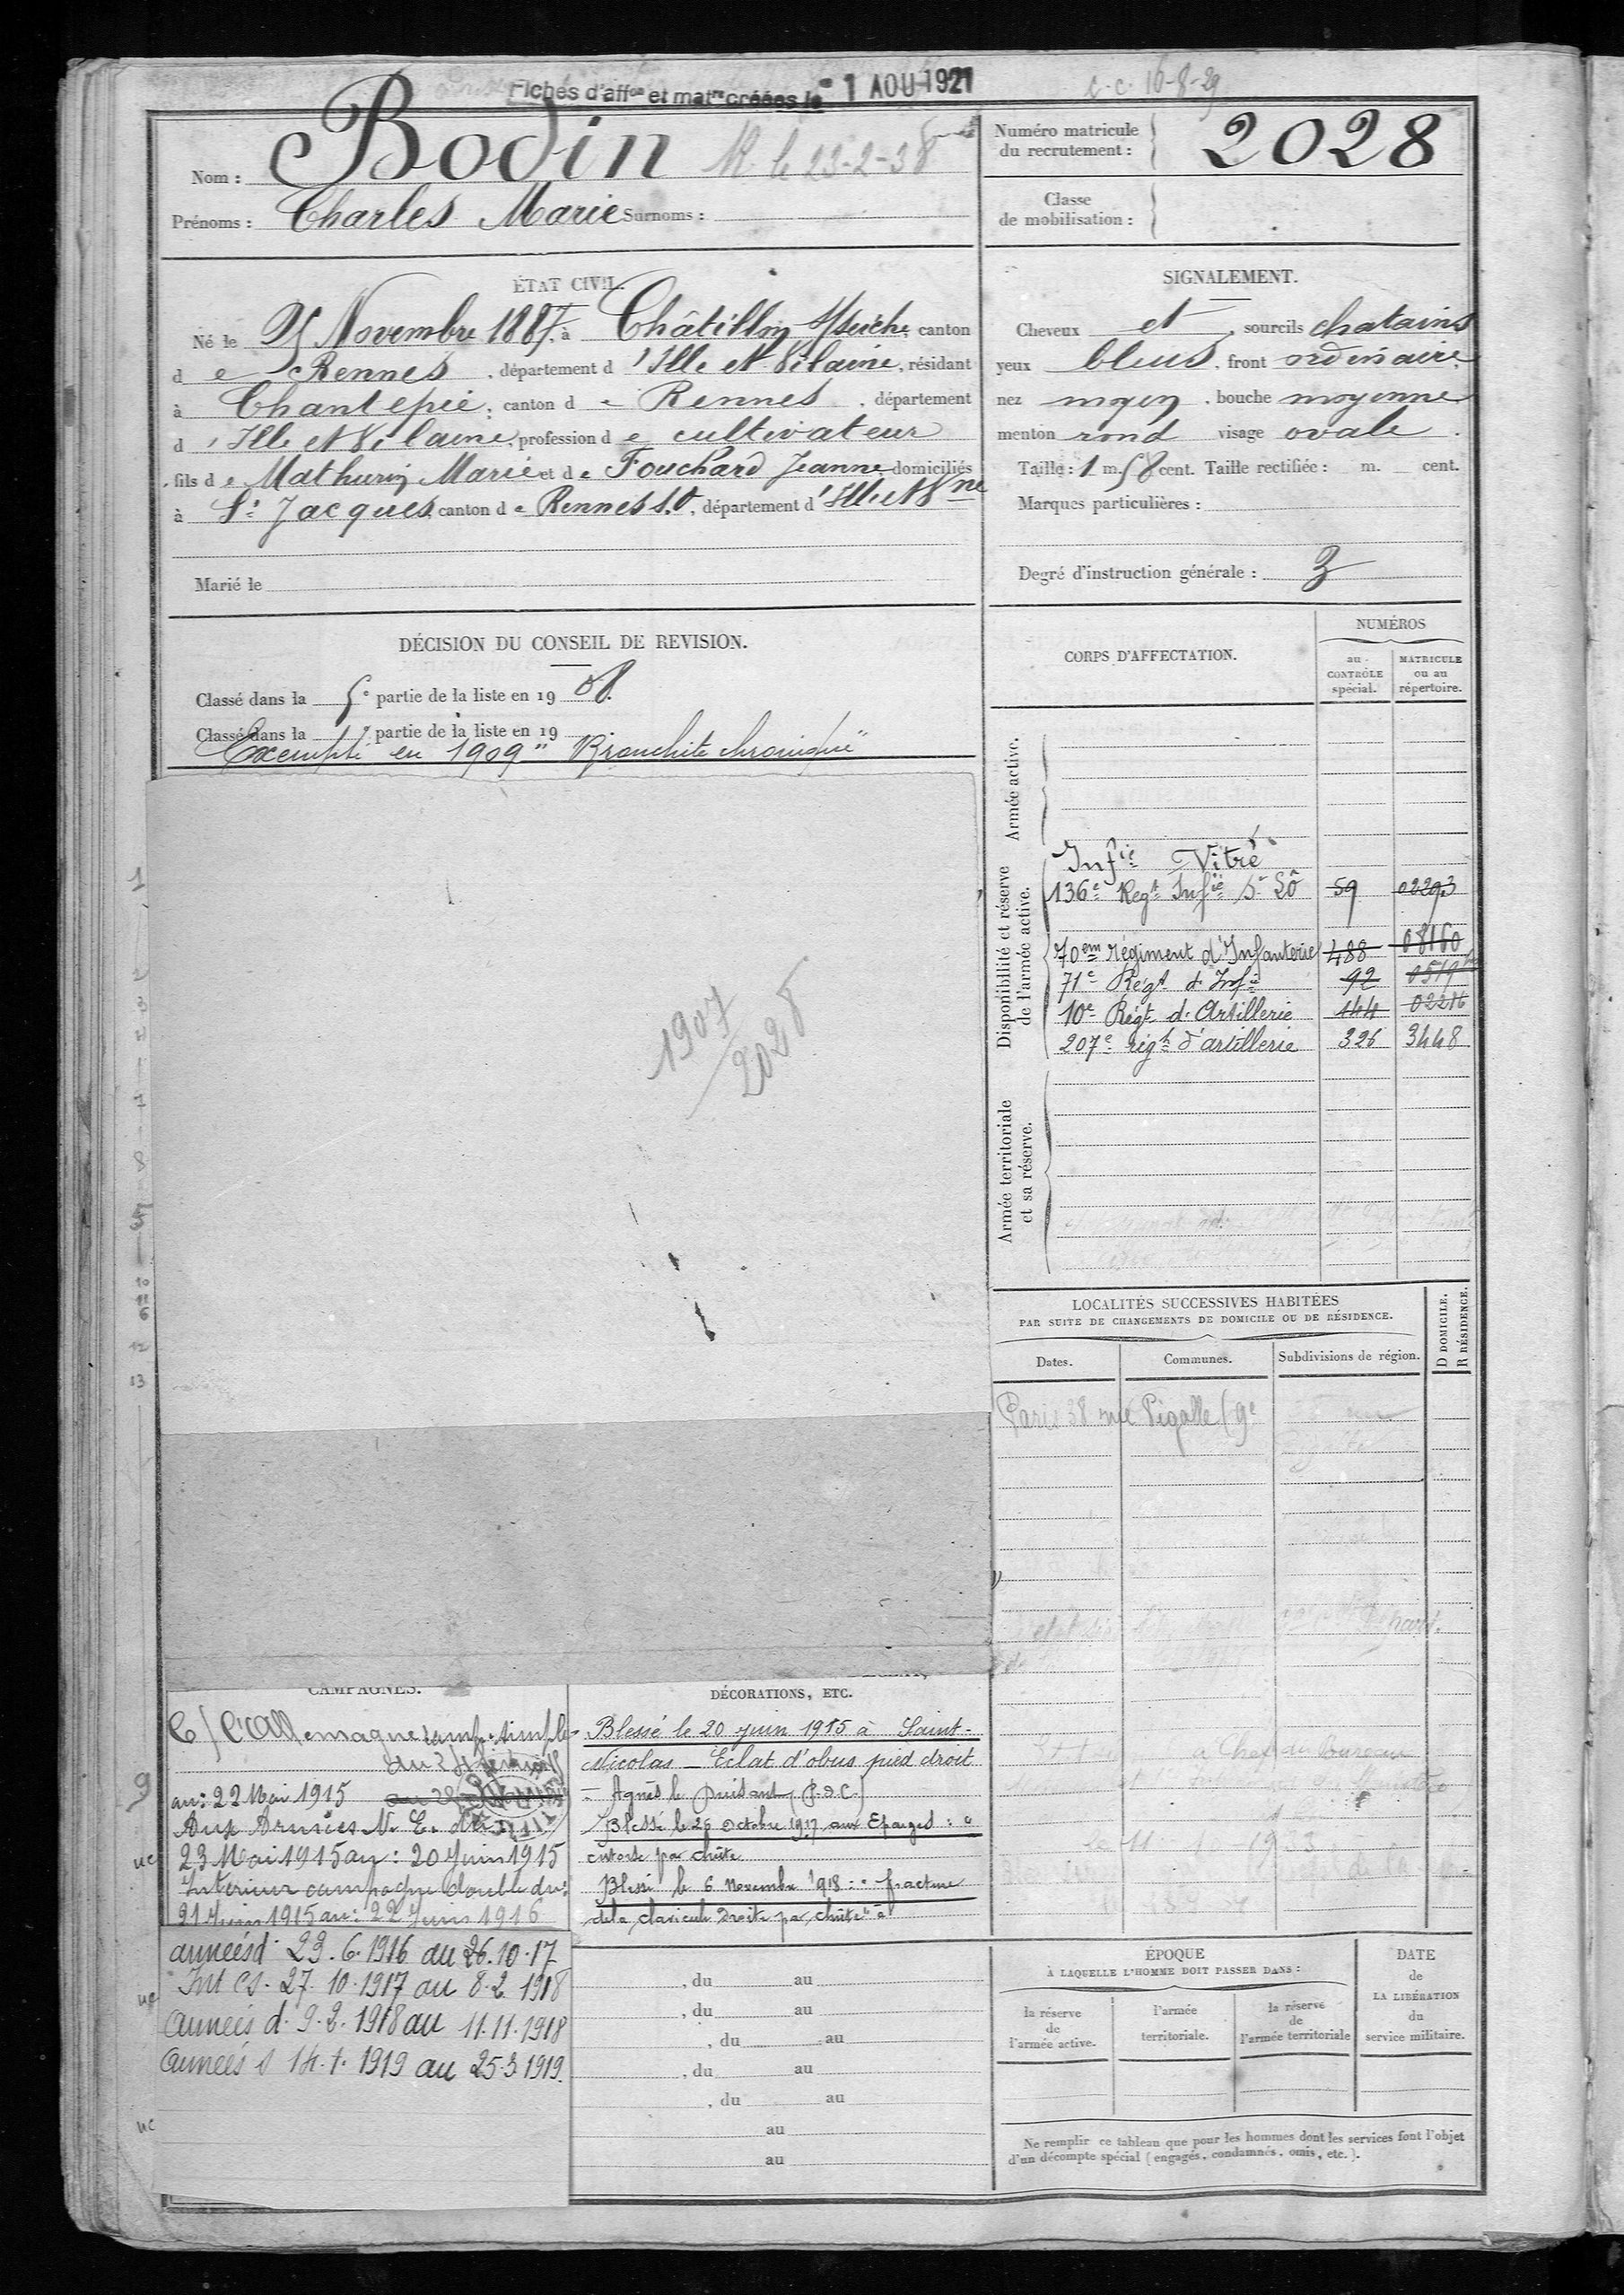 Fiches d'aff^on et mat^re créées le - 1 AOU 1921
c.c. 16-8-29
Nom : Bodin R. le 23-2-38
Prénoms : Charles Marie Surnoms :
Numéro matricule du recrutement : 2028
Classe de mobilisation :
ÉTAT CIVIL.
Né le Novembre 1887, à Châtillon s/Seiche, canton
de Rennes, département d'Ille et Vilaine, résidant
à Chantepie, canton de Rennes, département
d'Ille et Vilaine, profession de cultivateur
fils de Mathurin Marie et de Fouchard Jeanne domiciliés
à St Jacques, canton de Rennes S.O, département d'Ille et V^ne
Marié le
SIGNALEMENT.
Cheveux et, sourcils chatains
yeux bleus, front ordinaire,
nez moyen, bouche moyenne
menton rond visage ovale.
Taille : 1 m. 58 cent. Taille rectifiée : m. cent.
Marques particulières :
Degré d'instruction générale : 3
DÉCISION DU CONSEIL DE REVISION.
Classé dans la 5e partie de la liste en 1908.
Classé dans la partie de la liste en 19
Exempté en 1909 "Bronchite chronique"
1907
2028
CORPS D'AFFECTATION.
NUMÉROS
au CONTRÔLE spécial.
MATRICULE ou au répertoire.
Armée active.
Disponibilité et réserve de l'armée active.
Inf^ie Vitré
136e Reg^t Inf^ie St Lô 59 02293
70em régiment d'Infanterie 488 08160
71e Rég^t d'Inf^ie 92
10e Rég^t d'Artillerie 144 02216
207e rég^t d'artillerie 326 3448
Armée territoriale et sa réserve.
LOCALITÉS SUCCESSIVES HABITÉES
PAR SUITE DE CHANGEMENTS DE DOMICILE OU DE RÉSIDENCE.
Dates. Communes. Subdivisions de région.
D DOMICILE.
R RÉSIDENCE.
Paris 38 rue Pigalle (9e
CAMPAGNES.
C/ l'Allemagne camp. simple
au : 22 Mai 1915
Aux Armées N. E. du
23 Mai 1915 au : 20 Juin 1915
Intérieur campagne double du :
21 Juin 1915 au : 22 Juin 1916
armées d. 23.6.1916 au 26.10.17
Int cs. 27.10.1917 au 8.2.1918
Armées d. 9.2.1918 au 11.11.1918
Armées s 14.1.1919 au 25.3.1919.
DÉCORATIONS, ETC.
Blessé le 20 juin 1915 à Saint-
Nicolas – Eclat d'obus pied droit
– Agnès le Puisant (P.d.C.)
Blessé le 26 Octobre 1917 aux Eparges :
entorse par chute
Blessé le 6 Novembre 1918 : "fracture
de la clavicule droite par chute"
, du au
, du au
, du au
, du au
, du au
au
au
ÉPOQUE
À LAQUELLE L'HOMME DOIT PASSER DANS :
la réserve de l'armée active.
l'armée territoriale.
la réserve de l'armée territoriale
DATE
de
LA LIBÉRATION
du
service militaire.
Ne remplir ce tableau que pour les hommes dont les services font l'objet
d'un décompte spécial (engagés, condamnés, omis, etc.).